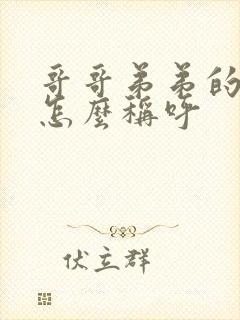 哥哥弟弟的
怎麼稱呼
伏立群